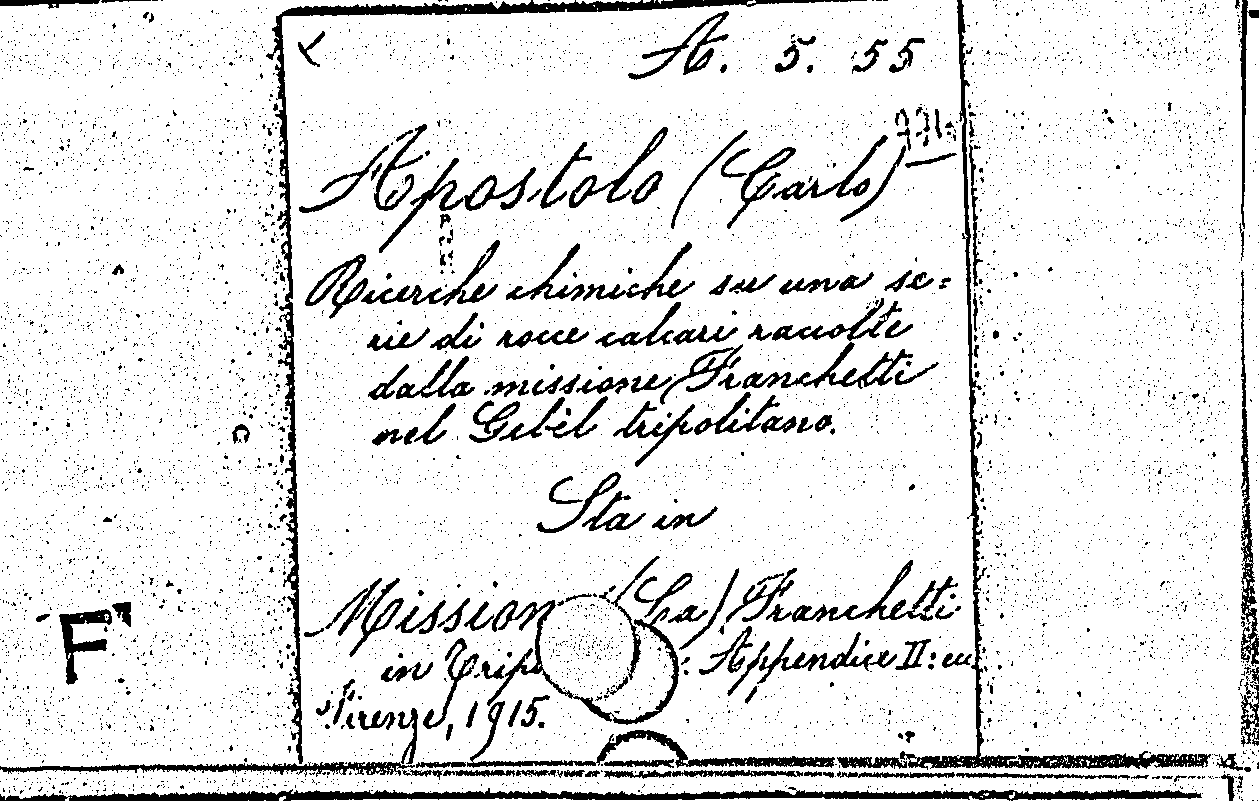 A. 5. 55
Apostolo (Carlo)
Ricerche chimiche su una se=
rie di rocce calcari raccolte
dalla missione Franchetti
nel Gebèl tripolitano.
Sta in
Mission (La) Franchetti
in Tripo : Appendice II: ecc
Firenze, 1915.
F